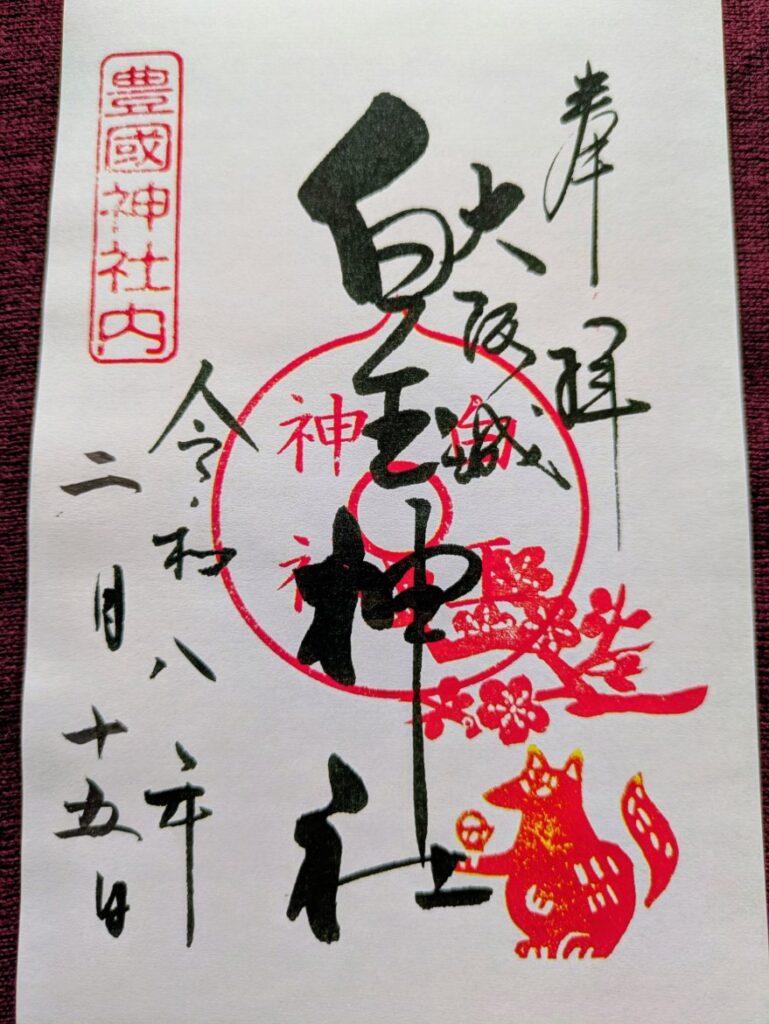 奉拝
大阪城
白玉神社
神
豊國神社内
令和八年
二月十五日